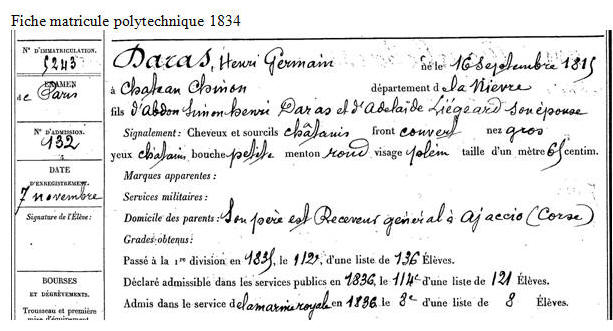 Fiche matricule polytechnique 1834
N° D'IMMATRICULATION.
5243
EXAMEN
de Paris
N° D'ADMISSION.
132
DATE
D'ENREGISTREMENT.
7 novembre
Signature de l'Élève:
BOURSES
ET DÉGRÈVEMENTS.
Trousseau et première
mise d'équipement
Daras, Henri Germain né le 16 septembre 1815
à Chateau Chinon département d la Nièvre
fils d'Abdon Simon henri Daras et d'Adelaide Liégeard son épouse
Signalement: Cheveux et sourcils châtains front couvert nez gros
yeux châtain, bouche petite menton rond visage plein taille d'un mètre 65 centim.
Marques apparentes :
Services militaires :
Domicile des parents : Son père est Receveur général à Ajaccio (Corse)
Grades obtenus :
Passé à la 1re division en 1835, le 112e d'une liste de 136 Élèves.
Déclaré admissible dans les services publics en 1836, le 114e d'une liste de 121 Élèves.
Admis dans le service de la marine royale en 1836 le 3e d'une liste de 8 Élèves.